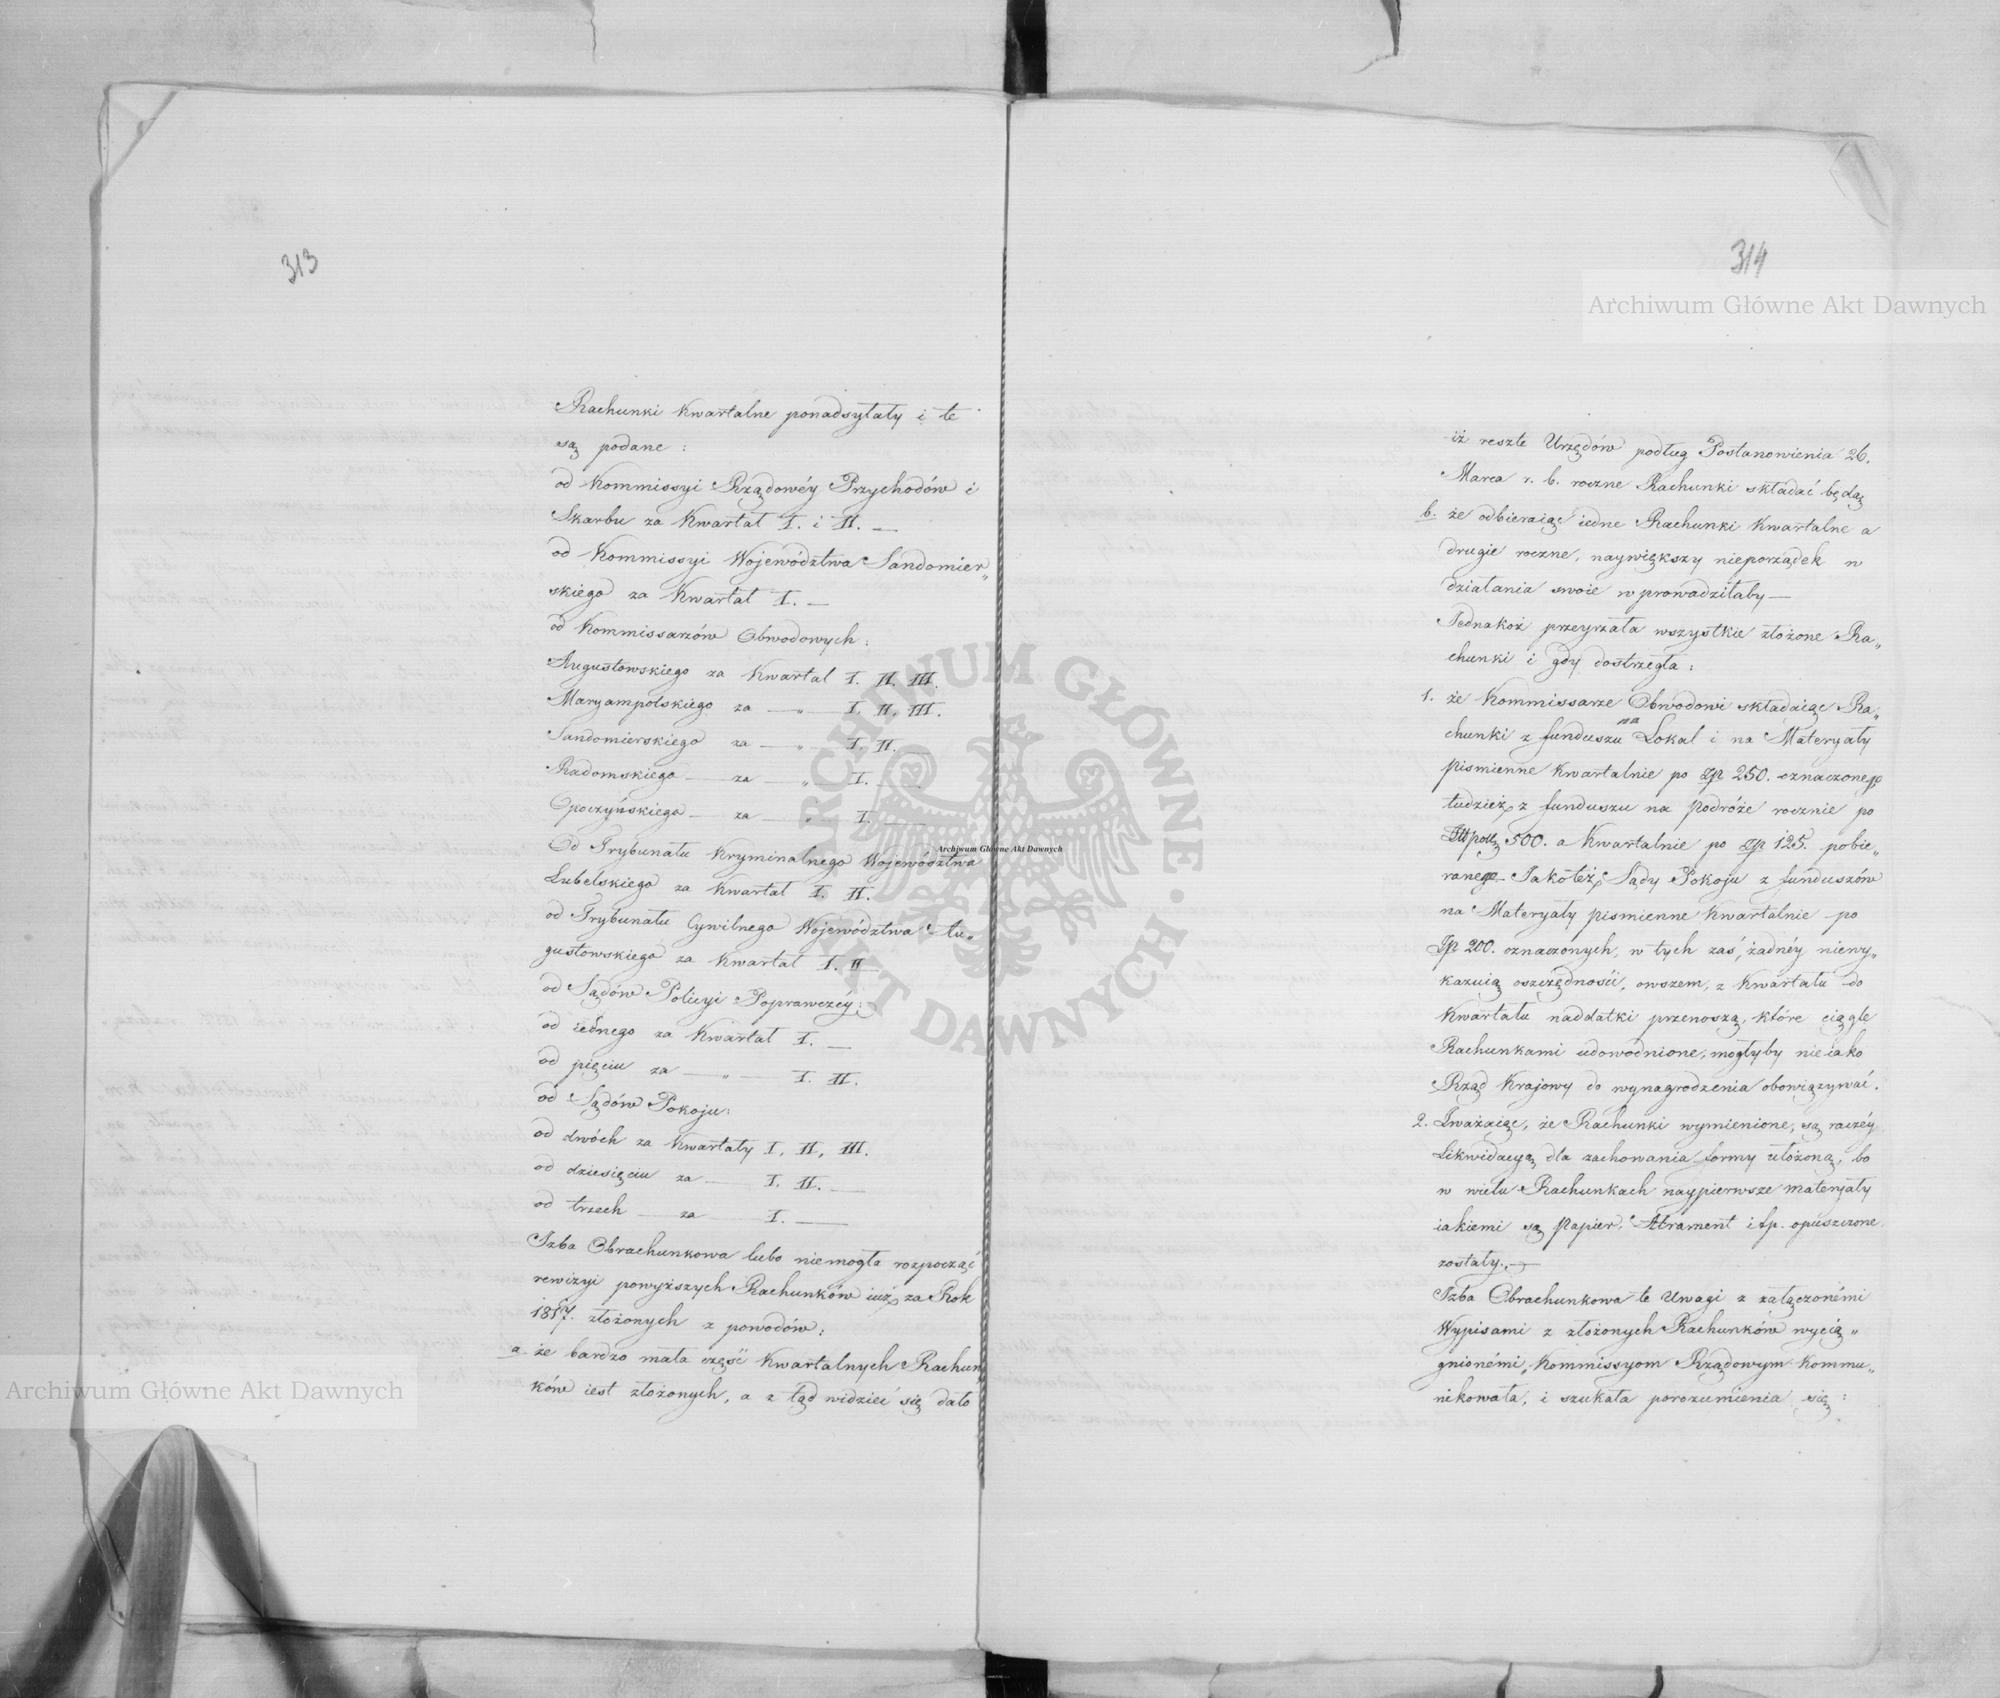 313
Rachunki kwartalne ponadsyłały i te
są podane:
od Kommissyi Rządowéy Przychodów i
Skarbu za Kwartał I. i II. —
od Kommissyi Województwa Sandomier„
skiego za Kwartał I. —
od Kommissarzów Obwodowych:
Augustowskiego za Kwartał I. II. III.
Maryampolskiego za — „ — I. II. III.
Sandomierskiego za — „ — I. II. —
Radomskiego — za — „ I. —
Opoczyńskiego — za — „ — I. —
Od Trybunału Kryminalnego Województwa
Lubelskiego za Kwartał I. II.
od Trybunału Cywilnego Województwa Au„
gustowskiego za Kwartał I. II —
od Sądów Policyi Poprawczéy:
od iednego za Kwartał I. —
od pięciu za — „ — I. II.
od Sądów Pokoju:
od dwóch za Kwartały I, II, III.
od dziesięciu za — I. II. —
od trzech — za — I. —
Izba Obrachunkowa lubo niemogła rozpocząć
rewizyi powyższych Rachunków iuż za Rok
1817. złożonych z powodów:
a. że bardzo mała część Kwartalnych Rachun„
ków iest złożonych, a z tąd widzieć się dało
314
iż reszte Urzędów podług Postanowienia 26.
Marca r. b. roczne Rachunki składać będą
b. że odbieraiąc iedne Rachunki Kwartalne a
drugie roczne, naywiększy nieporządek w
działania swoie wprowadziłaby —
Jednakoż przeyrzała wszystkie złożone Ra„
chunki i gdy dostrzegła:
1. że Kommissarze Obwodowi składaiąc Ra„
chunki z funduszu na Lokal i na Materyały
pismienne Kwartalnie po Zp 250. oznaczonego
tudzież z funduszu na podróże rocznie po
500. a Kwartalnie po Zp 125. pobie„
ranego — Jakoteż Sądy Pokoju z funduszów
na Materyały pismienne Kwartalnie po
Zp 200. oznaczonych, w tych zaś, żadnéy niewy„
kazuią oszczędności, owszem, z Kwartału do
Kwartału naddatki przenoszą, które ciągle
Rachunkami udowodnione, mogłyby nieiako
Rząd Krajowy do wynagrodzenia obowiązywać.
2. Zważaiąc, że Rachunki wymienione, są raczéy
Likwidacyą dla zachowania formy ułożoną, bo
w wielu Rachunkach naypierwsze materyały
iakiemi są Papier, Atrament i t.p. opuszczone
zostały. —
Izba Obrachunkowa te Uwagi z załączonémi
Wypisami z złożonych Rachunków wycią„
gnionémi, Kommissyom Rządowym kommu„
nikowała, i szukała porozumienia się:
Archiwum Główne Akt Dawnych
Archiwum Główne Akt Dawnych
Archiwum Główne Akt Dawnych
ARCHIWUM GŁÓWNE AKT DAWNYCH